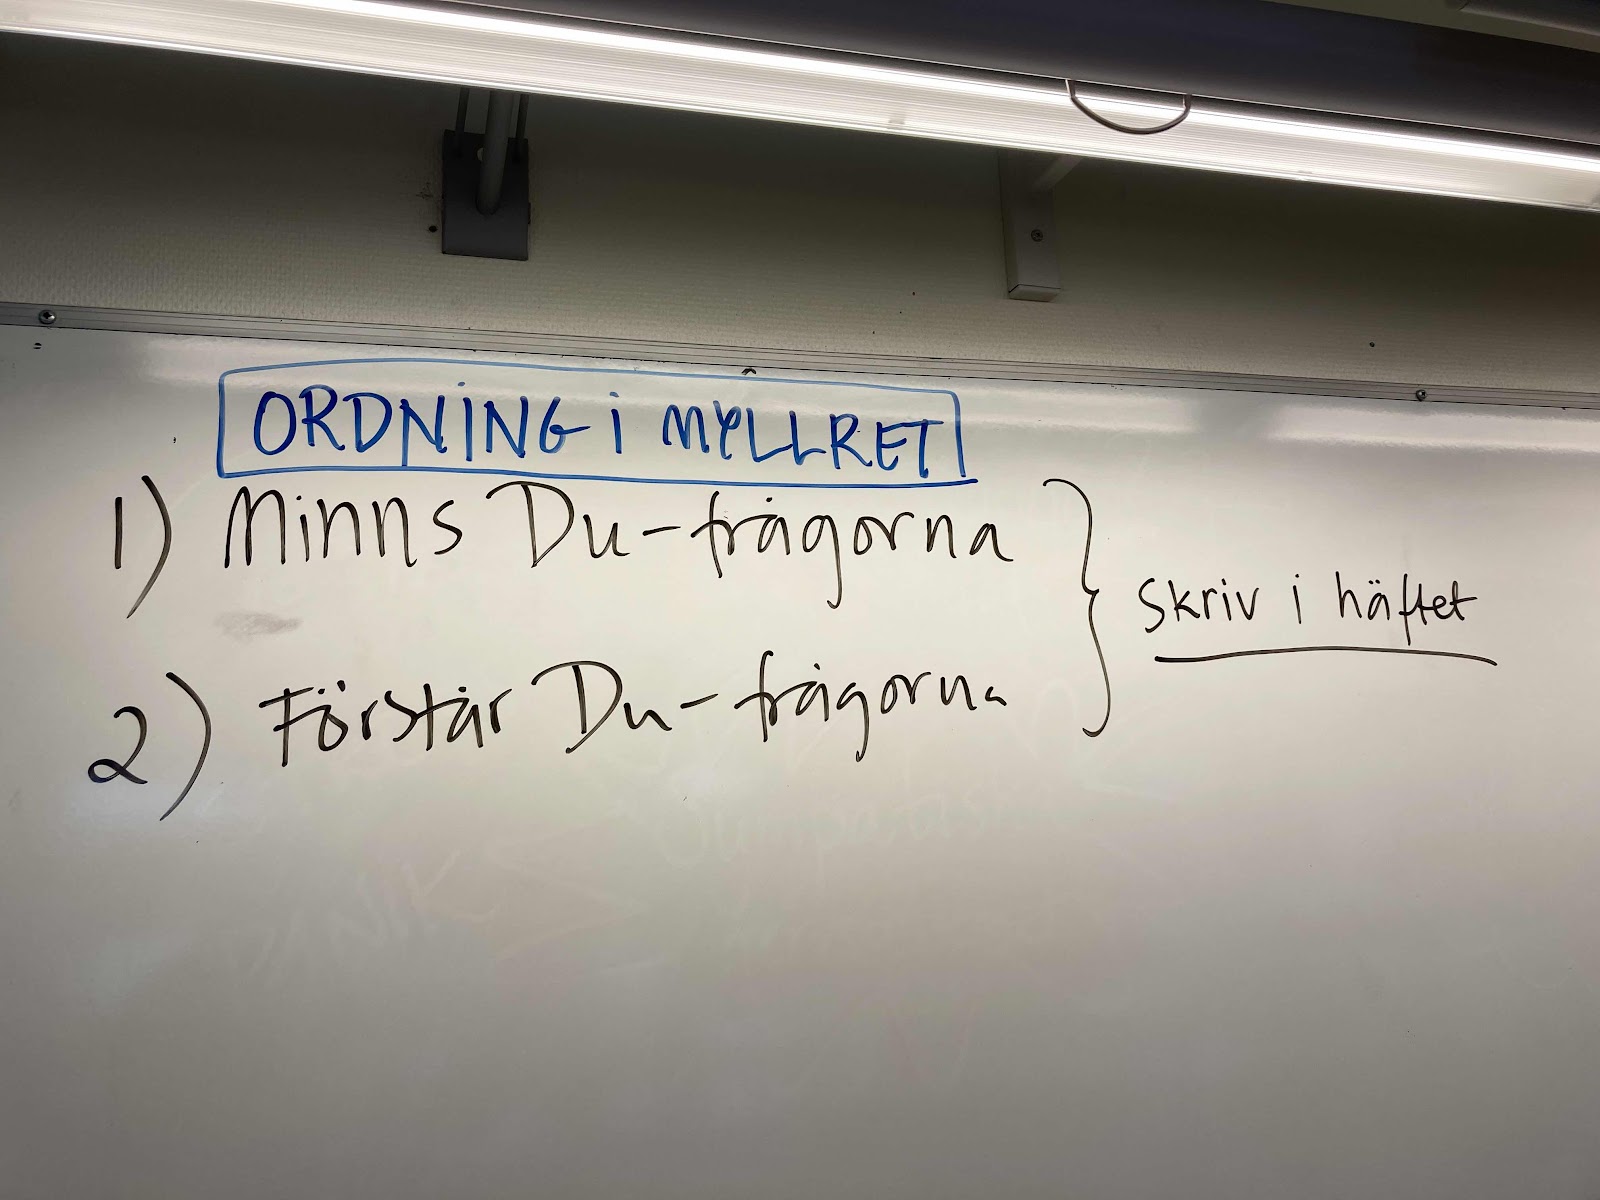 ORDNING i MYLLRET
1) Minns Du-frågorna
2) Förstår Du-frågorna
Skriv i häftet